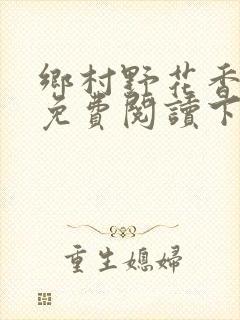 鄉村野花香
免費閱讀下
重生媳婦